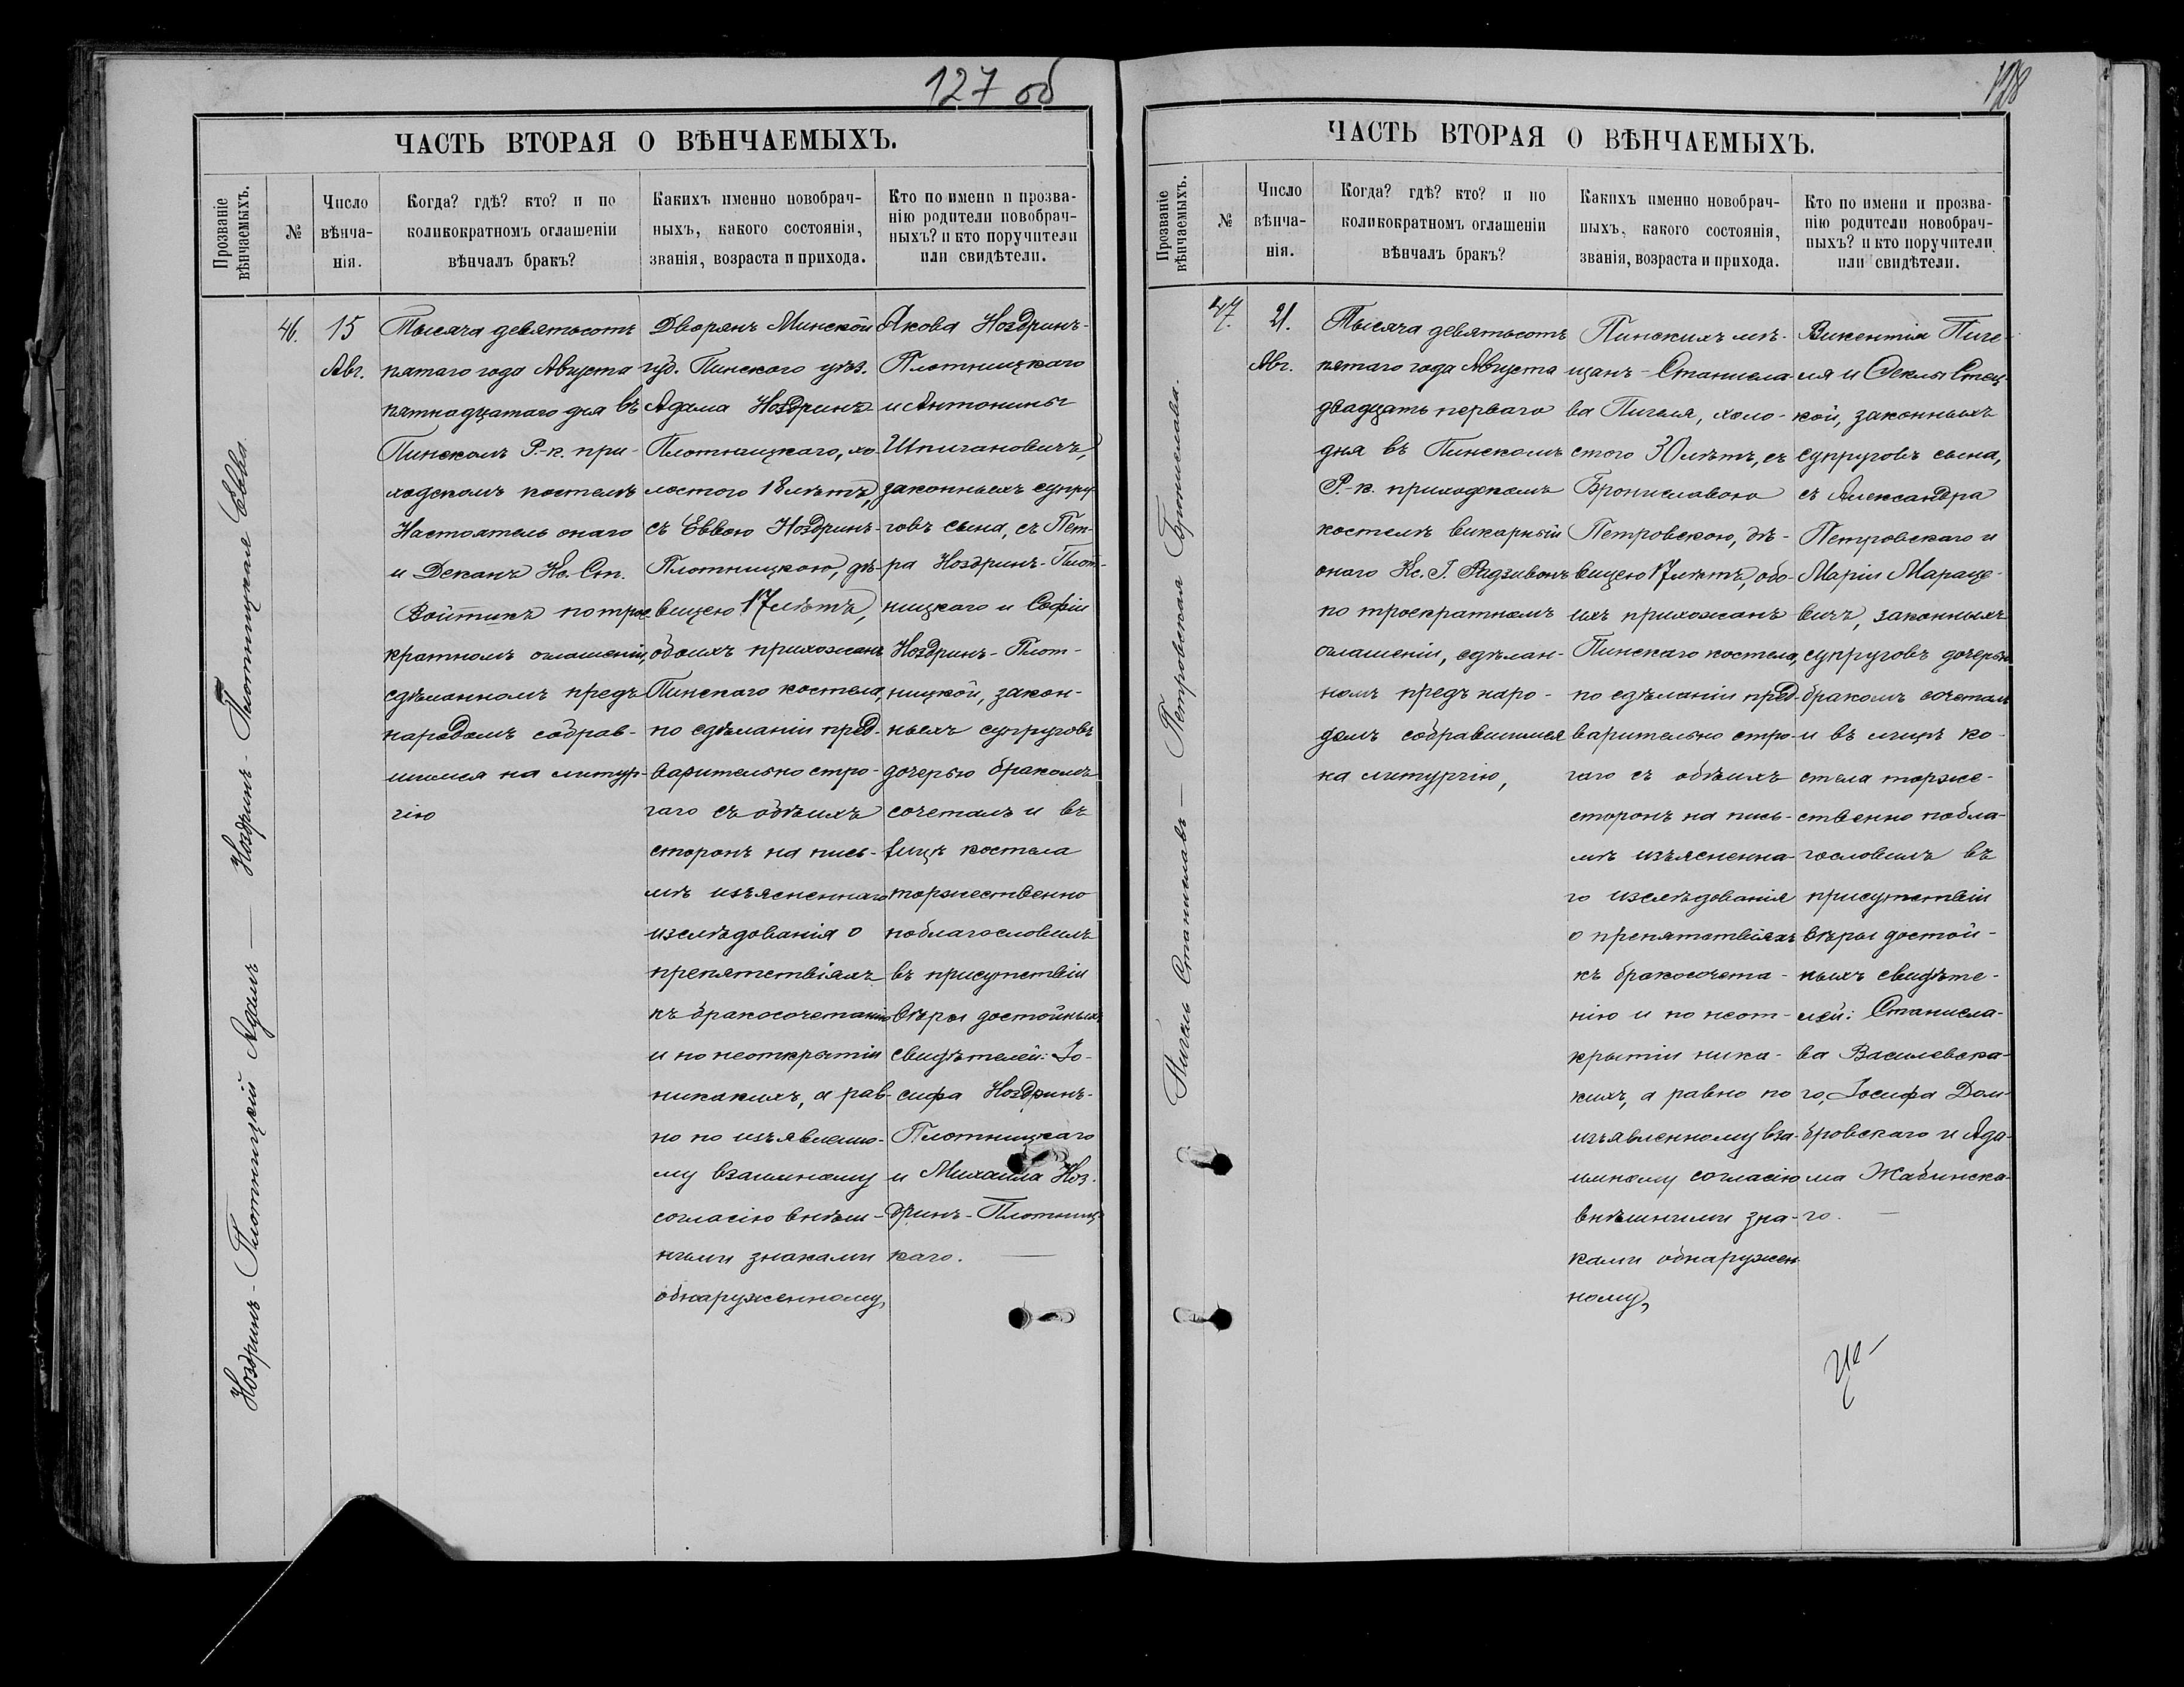 127 об
ЧАСТЬ ВТОРАЯ О ВѢНЧАЕМЫХЪ.
Прозваніе
вѣнчаемыхъ.
№
Число
вѣнча-
нія.
Когда? гдѣ? кто? и по
коликократномъ оглашеніи
вѣнчалъ бракъ?
Какихъ именно новобрач-
ныхъ, какого состоянія,
званія, возраста и прихода.
Кто по имени и прозва-
нію родители новобрач-
ныхъ? и кто поручители
или свидѣтели.
Ноздринъ-Плотницкій Адамъ — Ноздринъ-Плотницкая Евва
46.
15
Авг.
Тысяча девятьсотъ
пятаго года Августа
пятнадцатаго дня въ
Пинскомъ Р.-к. при-
ходскомъ костелѣ
Настоятель онаго
и Деканъ Кс. Ст.
Войтикъ по трое-
кратномъ оглашеніи,
сдѣланномъ предъ
народомъ собрав-
шимся на литур-
гію
Дворянъ Минской
губ. Пинского уѣз.
Адама Ноздринъ
Плотницкаго, хо-
лостого 18 лѣтъ,
съ Еввою Ноздринъ-
Плотницкою, дѣ-
вицею 17 лѣтъ,
обоихъ прихожанъ
Пинскаго костела,
по сдѣланіи пред-
варительно стро-
гаго съ обѣихъ
сторонъ на пись-
мѣ изъясненнаго
изслѣдованія о
препятствіяхъ
къ бракосочетанію
и по неоткрытіи
никакихъ, а рав-
но по изъявленно-
му взаимному
согласію внѣш-
ними знаками
обнаруженному,
Якова Ноздринъ-
Плотницкаго
и Антонины
Шпигановичъ,
законныхъ супру-
говъ сына, съ Пет-
ра Ноздринъ-Плот-
ницкаго и Софіи
Ноздринъ-Плот-
ницкой, закон-
ныхъ супруговъ
дочерью бракомъ
сочеталъ и въ
лицѣ костела
торжественно
поблагословилъ
въ присутствіи
вѣры достойныхъ
свидѣтелей: Іо-
сифа Ноздринъ-
Плотницкаго
и Михаила Ноз-
дринъ-Плотниц-
каго. —
128
ЧАСТЬ ВТОРАЯ О ВѢНЧАЕМЫХЪ.
Прозваніе
вѣнчаемыхъ.
№
Число
вѣнча-
нія.
Когда? гдѣ? кто? и по
коликократномъ оглашеніи
вѣнчалъ бракъ?
Какихъ именно новобрач-
ныхъ, какого состоянія,
званія, возраста и прихода.
Кто по имени и прозва-
нію родители новобрач-
ныхъ? и кто поручители
или свидѣтели.
Пигель Станиславъ — Петровская Бронислава.
47.
21.
Авг.
Тысяча девятьсотъ
пятаго года Августа
двадцать перваго
дня въ Пинскомъ
Р.-к. приходскомъ
костелѣ викарный
онаго Кс. І. Радзивонъ
по троекратномъ
оглашеніи, сдѣлан-
номъ предъ наро-
домъ собравшимся
на литургію,
Пинскихъ мѣ-
щанъ - Станисла-
ва Пигеля, холо-
стого 30 лѣтъ, съ
Брониславою
Петровскою, дѣ-
вицею 17 лѣтъ, обо-
ихъ прихожанъ
Пинскаго костела,
по сдѣланіи пред-
варительно стро-
гаго съ обѣихъ
сторонъ на пись-
мѣ изъясненна-
го изслѣдованія
о препятствіяхъ
къ бракосочета-
нію и по неот-
крытіи ника-
кихъ, а равно по
изъявленному вза-
имному согласію
внѣшними зна-
ками обнаружен-
ному,
Викентія Пиге-
ля и Феклы Стец-
кой, законныхъ
супруговъ сына,
съ Александра
Петровскаго и
Маріи Мараце-
вичъ, законныхъ
супруговъ дочерью
бракомъ сочеталъ
и въ лицѣ ко-
стела торже-
ственно побла-
гословилъ въ
присутствіи
вѣры достой-
ныхъ свидѣте-
лей: Станисла-
ва Василевска-
го, Іосифа Дом-
бровскаго и Ада-
ма Жабинска-
го. —